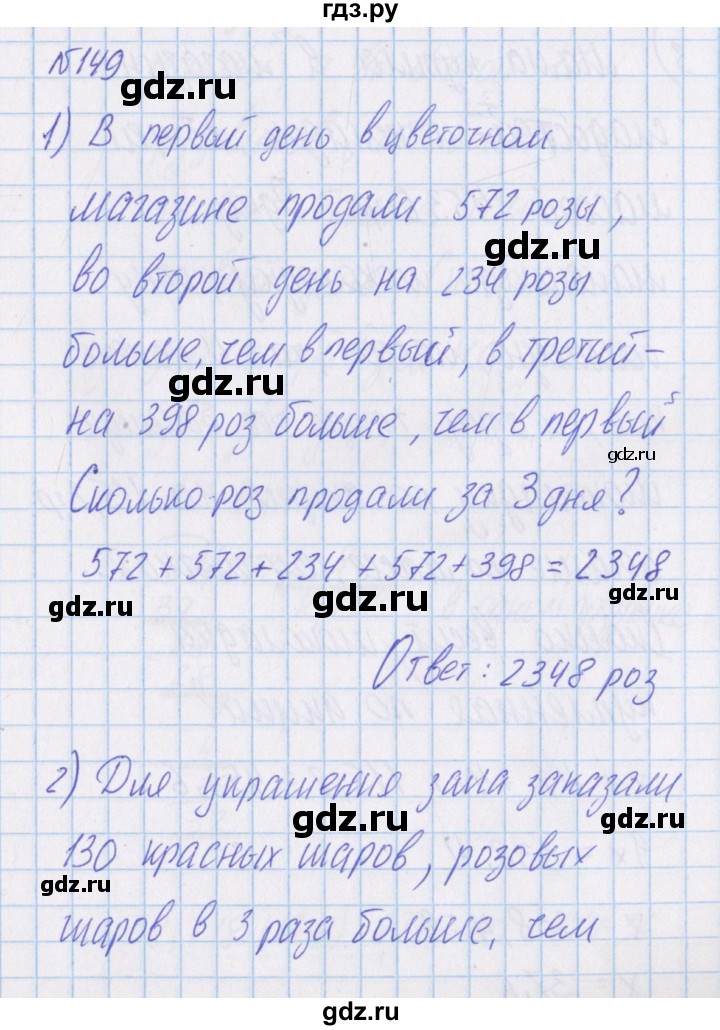 гдз.ру
№149
gdz.ru
1) В первый день в цветочном
магазине продали 572 розы,
gdz.ru
во второй день на 234 розы
больше, чем в первый, в третий-
gdz.ru
на 398 роз больше, чем в первый
gdz.ru
Сколько роз продали за 3 дня?
572+572+234+572+398=2348
gdz.ru gdz.ru gdz.ru
Ответ: 2348 роз
2) Для украшения зала заказали
gdz.ru gdz.ru
130 красных шаров, розовых
gdz.ru gdz.ru
шаров в 3 раза больше, чем
gdz.ru